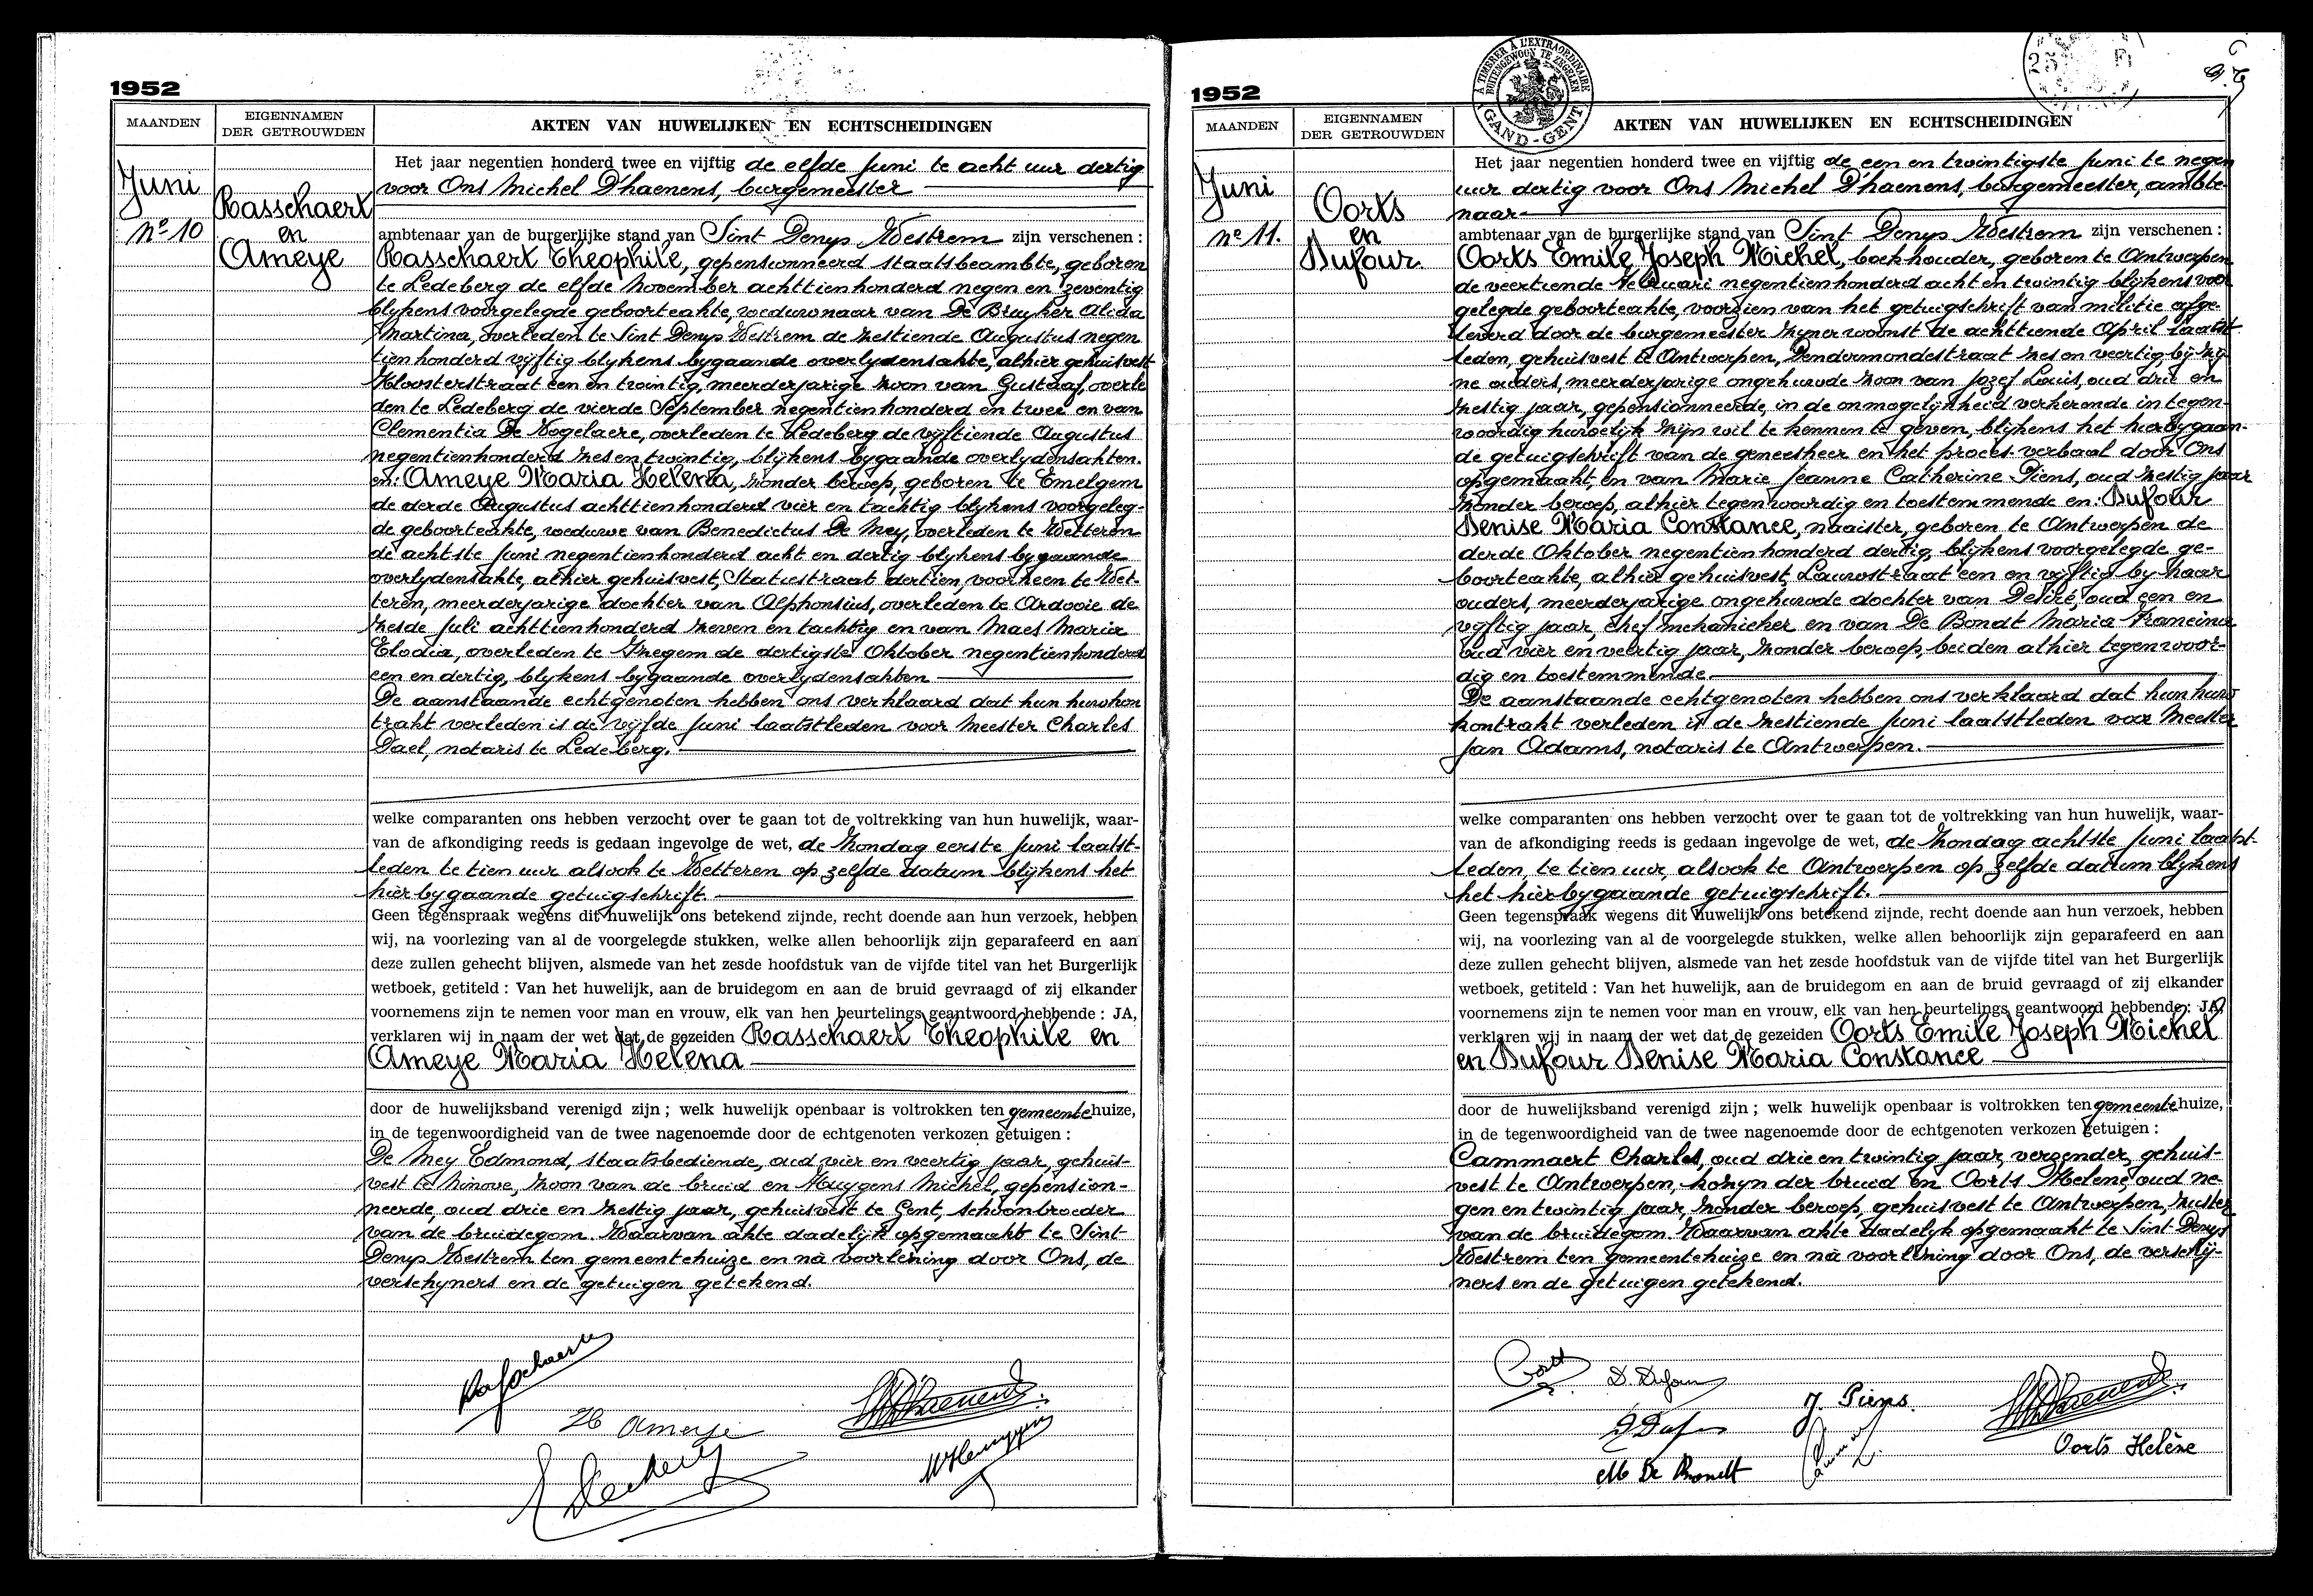 1952
MAANDEN
EIGENNAMEN
DER GETROUWDEN
AKTEN VAN HUWELIJKEN EN ECHTSCHEIDINGEN
Juni
No 10
Rasschaert
en
Ameye
Het jaar negentien honderd twee en vijftig de elfde Juni te acht uur dertig
voor Ons Michel D'haenens, burgemeester
ambtenaar van de burgerlijke stand van Sint Denys Westrem zijn verschenen :
Rasschaert Theophile, gepensionneerd staatsbeambte, geboren
te Ledeberg de elfde November achttienhonderd negen en zeventig
blykens voorgelegde geboorteakte, weduwnaar van De Bruyker Alida
Martina, overleden te Sint Denys Westrem de zestiende Augustus negen
tienhonderd vyftig blykens bygaande overlydensakte, alhier gehuisvest
Kloosterstraat een en twintig, meerderjarige zoon van Gustaaf, overle
den te Ledeberg de vierde September negentienhonderd en twee en van
Clementia De Vogelaere, overleden te Ledeberg de vyftiende Augustus
negentienhonderd zes en twintig, blykens bygaande overlydensakten.
en: Ameye Maria Helena, zonder beroep, geboren te Emelgem
de derde Augustus achttienhonderd vier en tachtig blykens voorgeleg-
de geboorteakte, weduwe van Benedictus De Mey, overleden te Wetteren
de achtste Juni negentienhonderd acht en dertig blykens bygaande
overlydensakte, alhier gehuisvest, Statiestraat dertien, voorheen te Wet-
teren, meerderjarige dochter van Alphonsius, overleden te Ardooie de
zesde Juli achttienhonderd zeven en tachtig en van Maes Maria
Elodia, overleden te Iregem de dertigste Oktober negentienhonderd
een en dertig, blykens bygaande overlydensakten
De aanstaande echtgenoten hebben ons verklaard dat hun huwkon
trakt verleden is de vyfde Juni laatstleden voor Meester Charles
Dael, notaris te Ledeberg.
welke comparanten ons hebben verzocht over te gaan tot de voltrekking van hun huwelijk, waar-
van de afkondiging reeds is gedaan ingevolge de wet, de Zondag eerste Juni laatst-
leden te tien uur alsook te Wetteren op zelfde datum blijkens het
hierbygaande getuigschrift.
Geen tegenspraak wegens dit huwelijk ons betekend zijnde, recht doende aan hun verzoek, hebben
wij, na voorlezing van al de voorgelegde stukken, welke allen behoorlijk zijn geparafeerd en aan
deze zullen gehecht blijven, alsmede van het zesde hoofdstuk van de vijfde titel van het Burgerlijk
wetboek, getiteld : Van het huwelijk, aan de bruidegom en aan de bruid gevraagd of zij elkander
voornemens zijn te nemen voor man en vrouw, elk van hen beurtelings geantwoord hebbende : JA,
verklaren wij in naam der wet dat de gezeiden Rasschaert Theophile en
Ameye Maria Helena
door de huwelijksband verenigd zijn ; welk huwelijk openbaar is voltrokken ten gemeentehuize,
in de tegenwoordigheid van de twee nagenoemde door de echtgenoten verkozen getuigen :
De Mey Edmond, staatsbediende, oud vier en veertig jaar, gehuis-
vest te Ninove, zoon van de bruid en Huygens Michel, gepension-
neerde, oud drie en zestig jaar, gehuisvest te Gent, schoonbroeder
van de bruidegom. Waarvan akte dadelijk opgemaakt te Sint-
Denys Westrem ten gemeentehuize en na voorlezing door Ons, de
verschyners en de getuigen getekend.
Rasschaert
Ameye
1952
A TIMBRER A L'EXTRAORDINAIRE
BUITENGEWOON TE ZEGELEN
GAND-GENT
MAANDEN
EIGENNAMEN
DER GETROUWDEN
AKTEN VAN HUWELIJKEN EN ECHTSCHEIDINGEN
Juni
No 11.
Oorts
en
Dufour
Het jaar negentien honderd twee en vijftig de een en twintigste Juni te negen
uur dertig voor Ons Michel D'haenens, burgemeester, ambte-
naar
ambtenaar van de burgerlijke stand van Sint Denys Westrem zijn verschenen :
Oorts Emile Joseph Michel, boekhouder, geboren te Antwerpen
de veertiende Februari negentienhonderd acht en twintig blykens voor
gelegde geboorteakte, voorzien van het getuigschrift van militie afge-
leverd door de burgemeester zyner woonst de achttiende April laatst
leden, gehuisvest te Antwerpen, Dendermondestraat zes en veertig bij zij
ne ouders, meerderjarige ongehuwde zoon van Jozef Louis, oud drie en
zestig jaar, gepensionneerde, in de onmogelijkheid verkerende in tegen-
woordig huwelijk zijn wil te kennen te geven, blijkens het hierbygaan-
de getuigschrift van de geneesheer en het proces-verbaal door Ons
opgemaakt, en van Marie Jeanne Catherine Piens, oud zestig jaar
zonder beroep, alhier tegenwoordig en toestemmende en: Dufour
Denise Maria Constance, naaister, geboren te Antwerpen de
derde Oktober negentienhonderd dertig, blijkens voorgelegde ge-
boorteakte, alhier gehuisvest, Lauwstraat een en vyftig by haar
ouders, meerderjarige ongehuwde dochter van Desiré, oud een en
vyftig jaar, chef mekanieker en van De Bondt Maria Francina
oud vier en veertig jaar, zonder beroep, beiden alhier tegenwoor-
dig en toestemmende.
De aanstaande echtgenoten hebben ons verklaard dat hun huw
kontrakt verleden is de zestiende Juni laatstleden voor Meester
Jan Adams, notaris te Antwerpen.
welke comparanten ons hebben verzocht over te gaan tot de voltrekking van hun huwelijk, waar-
van de afkondiging reeds is gedaan ingevolge de wet, de Zondag achtste Juni laatst-
leden, te tien uur, alsook te Antwerpen op zelfde datum blykens
het hierbygaande getuigschrift.
Geen tegenspraak wegens dit huwelijk ons betekend zijnde, recht doende aan hun verzoek, hebben
wij, na voorlezing van al de voorgelegde stukken, welke allen behoorlijk zijn geparafeerd en aan
deze zullen gehecht blijven, alsmede van het zesde hoofdstuk van de vijfde titel van het Burgerlijk
wetboek, getiteld : Van het huwelijk, aan de bruidegom en aan de bruid gevraagd of zij elkander
voornemens zijn te nemen voor man en vrouw, elk van hen beurtelings geantwoord hebbende : JA,
verklaren wij in naam der wet dat de gezeiden Oorts Emile Joseph Michel
en Dufour Denise Maria Constance
door de huwelijksband verenigd zijn ; welk huwelijk openbaar is voltrokken ten gemeentehuize,
in de tegenwoordigheid van de twee nagenoemde door de echtgenoten verkozen getuigen :
Cammaert Charles, oud drie en twintig jaar, verzender, gehuis-
vest te Antwerpen, kozyn der bruid en Oorts Helene, oud ne
gen en twintig jaar, zonder beroep, gehuisvest te Antwerpen, zuster
van de bruidegom. Waarvan akte dadelyk opgemaakt te Sint Denys
Westrem ten gemeentehuize en na voorlezing door Ons, de verschij-
ners en de getuigen getekend.
D. Dufour
J. Piens.
M De Bondt
Oorts Helène